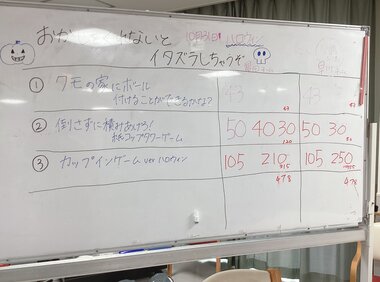 10月31日 ハロウィン
イタズラしちゃうぞ
① クモの家にボール
付けることができるかなよ?
43 43
② 倒さずに積みあげろ!
紙コップタワーゲーム
50 40 30 50 30
120
③ カップインゲーム ver ハロウィン
105 210 105 250
478 478